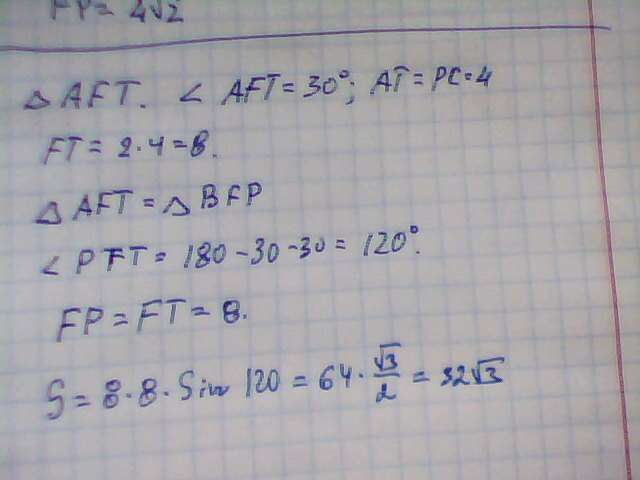 FP = 4√2
△ AFT. ∠ AFT = 30°; AT = PC = 4
FT = 2·4 = 8.
△ AFT = △ BFP
∠ PFT = 180 - 30 - 30 = 120°.
FP = FT = 8.
S = 8·8·Sin 120 = 64·√3/2 = 32√3